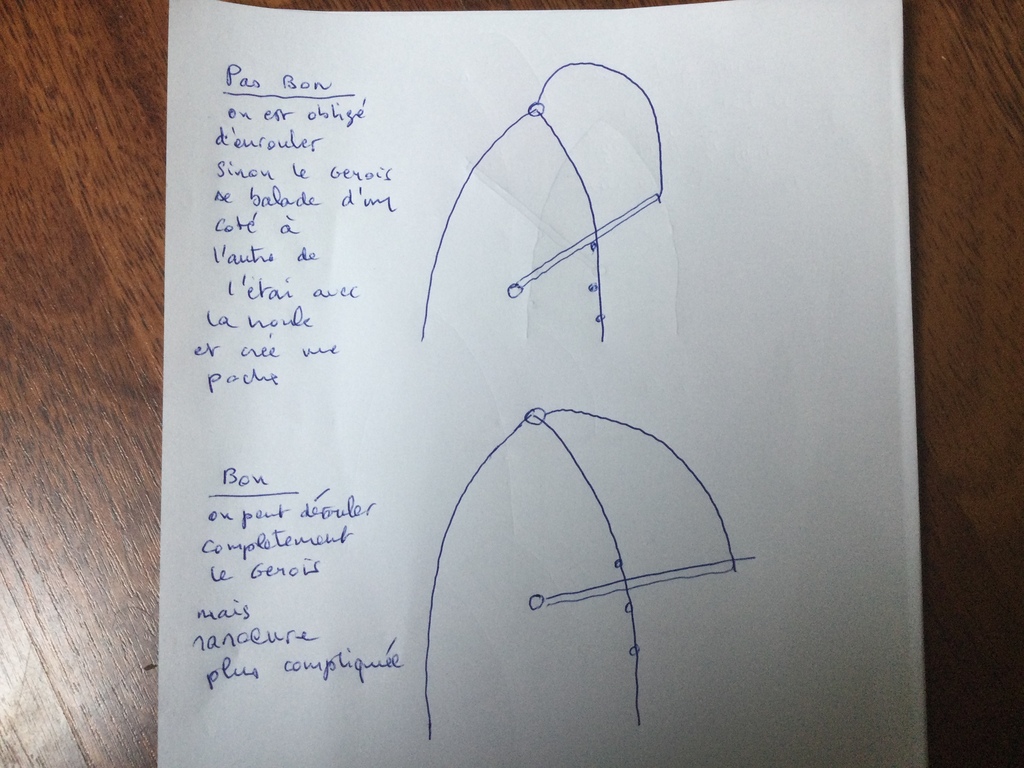 Pas Bon
on est obligé
d'enrouler
sinon le Genois
se balade d'un
coté à
l'autre de
l'étai avec
la houle
et crée une
poche
Bon
on peut dérouler
complètement
le Genois
mais
manœuvre
plus compliquée